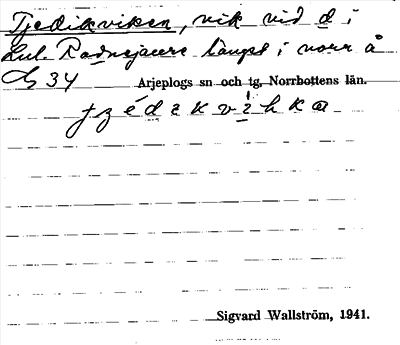 Tjedikviken, vik vid d i
Lul. Radnejaure längst i norr å
34 Arjeplogs sn och tg, Norrbottens län.
Sigvard Wallström, 1941.